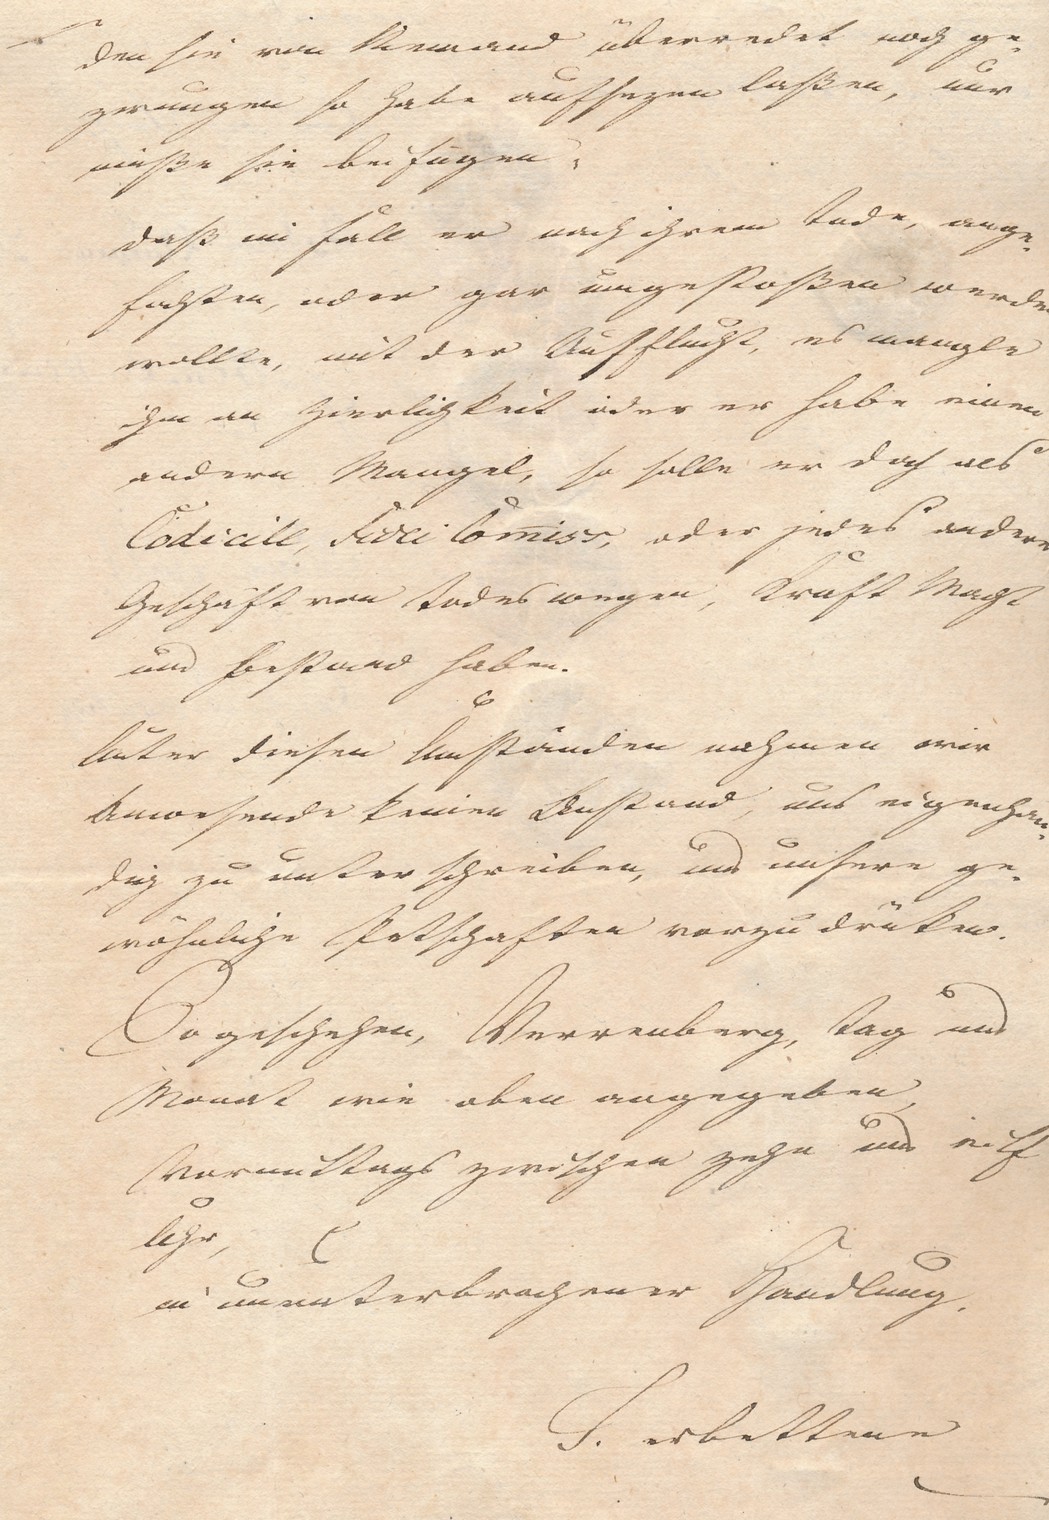 den sie von Niemand überredet noch ge-
zwungen so habe aufsezen laßen, nur
müße sie beifügen,
daß im Fall er nach ihrem Tode, ange-
fochten, oder gar umgestoßen werden
wollte, mit der Ausflucht, es mangle
ihm an Zierlichkeit oder er habe einen
andern Mangel, so solle er doch als
Codicill, Fidei Com̅iss, oder jedes andere
Geschäft von Todes wegen, Kraft Macht
und Bestand haben.
Unter diesen Umständen nahmen wir
Anwesende keinen Anstand, uns eigenhän-
dig zu unterschreiben, und unsere ge-
wöhnliche Petschaften vorzudrüken.
So geschehen, Verrenberg, Tag und
Monat wie oben angegeben,
Vormittags zwischen zehn und eilf
Uhr,
in ununterbrochener Handlung.
T. erbettene